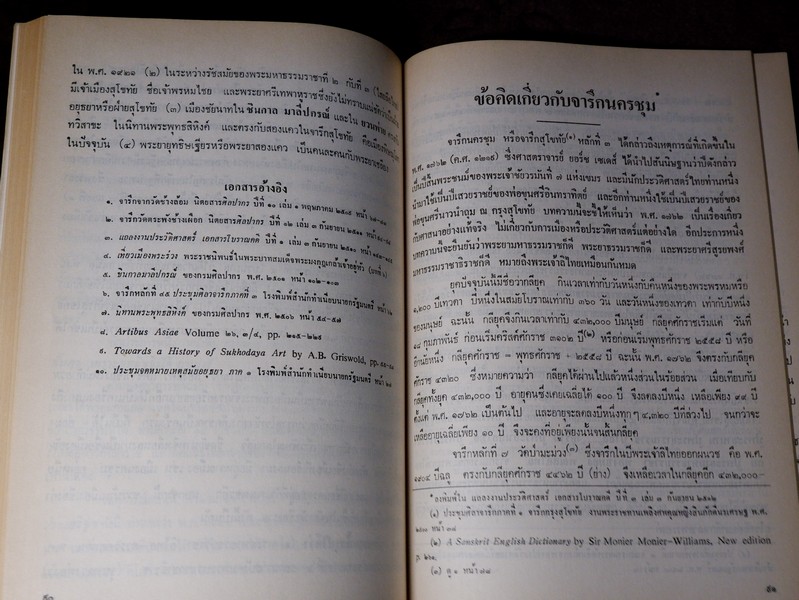 ใน พ.ศ. ๑๙๒๑ (๒) ในระหว่างรัชสมัยของพระมหาธรรมราชาที่ ๒ กับที่ ๓
มีเจ้าเมืองสุโขทัย ชื่อเจ้าพรหมไชย และพระยาศรีเทพาหุราชซึ่งยังไม่ทราบแน่ชัดว่าเป็น
อยุธยาหรือฝ่ายสุโขทัย (๓) เมืองชัยนาทใน ชินกาล มาลีปกรณ์ และใน
ทวิสาขะ ในนิทานพระพุทธสิหิงค์ และตรงกับสองแควในจารึกสุโขทัย คือเมือง
ในปัจจุบัน (๔) พระยายุทธิษเฐียรหรือพระยาสองแคว เป็นคนละคนกับพระยาเชลียง
เอกสารอ้างอิง
๑. จารึกจากวัดช้างล้อม นิตยสารศิลปากร ปีที่ ๑๐ เล่ม ๑ พฤษภาคม ๒๕๐๙ หน้า
๒. จารึกวัดตระพังช้างเผือก นิตยสารศิลปากร ปีที่ ๑๒ เล่ม ๓ กันยายน ๒๕๑๑ หน้า
๓. แถลงงานประวัติศาสตร์ เอกสารโบราณคดี ปีที่ ๑ เล่ม ๓ กันยายน ๒๕๑๐ หน้า
๔. เที่ยวเมืองพระร่วง พระราชนิพนธ์ในพระบาทสมเด็จพระมงกุฎเกล้าเจ้าอยู่หัว
๕. ชินกาลมาลีปกรณ์ ของกรมศิลปากร พ.ศ. ๒๕๐๑ หน้า ๑๐๒–๑๐๓
๖. จารึกหลักที่ ๔๕ ประชุมศิลาจารึกภาคที่ ๓ โรงพิมพ์สำนักทำเนียบนายกรัฐมนตรี หน้า
๗. นิทานพระพุทธสิหิงค์ ของกรมศิลปากร พ.ศ. ๒๕๐๖ หน้า ๕๔–๕๗
๘. Artibus Asiae Volume ๒๖, ๓/๔, pp. ๒๑๕–๒๒๕
๙. Towards a History of Sukhodaya Art by A.B. Griswold, pp.
๑๐. ประชุมจดหมายเหตุสมัยอยุธยา ภาค ๑ โรงพิมพ์สำนักทำเนียบนายกรัฐมนตรี หน้า
๕๐
ข้อคิดเกี่ยวกับจารึกนครชุม*
จารึกนครชุม หรือจารึกสุโขทัย(๑) หลักที่ ๓ ได้กล่าวถึงเหตุการณ์ที่เกิดขึ้นใน
พ.ศ. ๑๗๖๒ (ค.ศ. ๑๒๑๙) ซึ่งศาสตราจารย์ ยอร์ช เซเดส์ ได้นำไปสันนิษฐานว่าปีดังกล่าว
เป็นปีสิ้นพระชนม์ของพระเจ้าชัยวรมันที่ ๗ แห่งเขมร และมีนักประวัติศาสตร์ไทยท่านหนึ่ง
นำมาใช้เป็นปีเสวยราชย์ของพ่อขุนศรีอินทราทิตย์ และอีกท่านหนึ่งใช้เป็นปีเสวยราชย์ของ
พ่อขุนศรีนาวนำถุม ณ กรุงสุโขทัย บทความนี้จะชี้ให้เห็นว่า พ.ศ. ๑๗๖๒ เป็นเรื่องเกี่ยว
กับศาสนาอย่างแท้จริง ไม่เกี่ยวกับการเมืองหรือประวัติศาสตร์แต่อย่างใด อีกประการหนึ่ง
บทความนี้จะยืนยันว่าพระยามหาธรรมราชาก็ดี พระยาธรรมราชาก็ดี และพระยาศรีสูรยพงศ์
มหาธรรมราชาธิราชก็ดี หมายถึงพระเจ้าลิไทยเหมือนกันหมด
ยุคปัจจุบันนี้มีชื่อว่ากลียุค กินเวลาเท่ากับวันหนึ่งกับคืนหนึ่งของพระพรหมหรือ
๑,๒๐๐ ปีเทวดา ปีหนึ่งในสมัยโบราณเท่ากับ ๓๖๐ วัน และวันหนึ่งของเทวดา เท่ากับปีหนึ่ง
ของมนุษย์ ฉะนั้น กลียุคจึงกินเวลาเท่ากับ ๔๓๒,๐๐๐ ปีมนุษย์ กลียุคศักราชเริ่มแต่ วันที่
๑๘ กุมภาพันธ์ ก่อนเริ่มคริสต์ศักราช ๓๑๐๒ ปี(๒) หรือก่อนเริ่มพุทธศักราช ๒๕๕๘ ปี หรือ
อีกนัยหนึ่ง กลียุคศักราช = พุทธศักราช + ๒๕๕๘ ปี ฉะนั้น พ.ศ. ๑๗๖๒ จึงตรงกับกลียุค
ศักราช ๔๓๒๐ ซึ่งหมายความว่า กลียุคได้ผ่านไปแล้วหนึ่งส่วนในร้อยส่วน เมื่อเทียบกับ
กลียุคทั้งยุค ๔๓๒,๐๐๐ ปี อายุคนซึ่งเคยเฉลี่ยได้ ๑๐๐ ปี จึงลดลงปีหนึ่ง เหลือเพียง ๙๙ ปี
ตั้งแต่ พ.ศ. ๑๗๖๒ เป็นต้นไป และอายุจะลดลงปีหนึ่งทุก ๆ ๔,๓๒๐ ปีที่ล่วงไป จนกว่าจะ
เหลืออายุเฉลี่ยเพียง ๑๐ ปี จึงจะคงที่อยู่เพียงนั้นจนสิ้นกลียุค
จารึกหลักที่ ๗ วัดป่ามะม่วง(๓) ซึ่งจารึกในปีพระเจ้าลิไทยออกผนวช คือ พ.ศ.
๑๙๐๔ ปีฉลู ตรงกับกลียุคศักราช ๔๔๖๒ ปี (ย่าง) จึงเหลือเวลาในกลียุคอีก ๔๓๒,๐๐๐–
* ลงพิมพ์ใน แถลงงานประวัติศาสตร์ เอกสารโบราณคดี ปีที่ ๓ เล่ม ๓ กันยายน ๒๕๑๒
(๑) ประชุมศิลาจารึกภาคที่ ๑ จารึกกรุงสุโขทัย งานพระราชทานเพลิงศพ พ.ศ.
หน้า ๓๘
(๒) A Sanskrit English Dictionary by Sir Monier Monier-Williams, New edition
p. ๒๖๑.
(๓) ดู ๑ หน้า ๗๘
๕๑